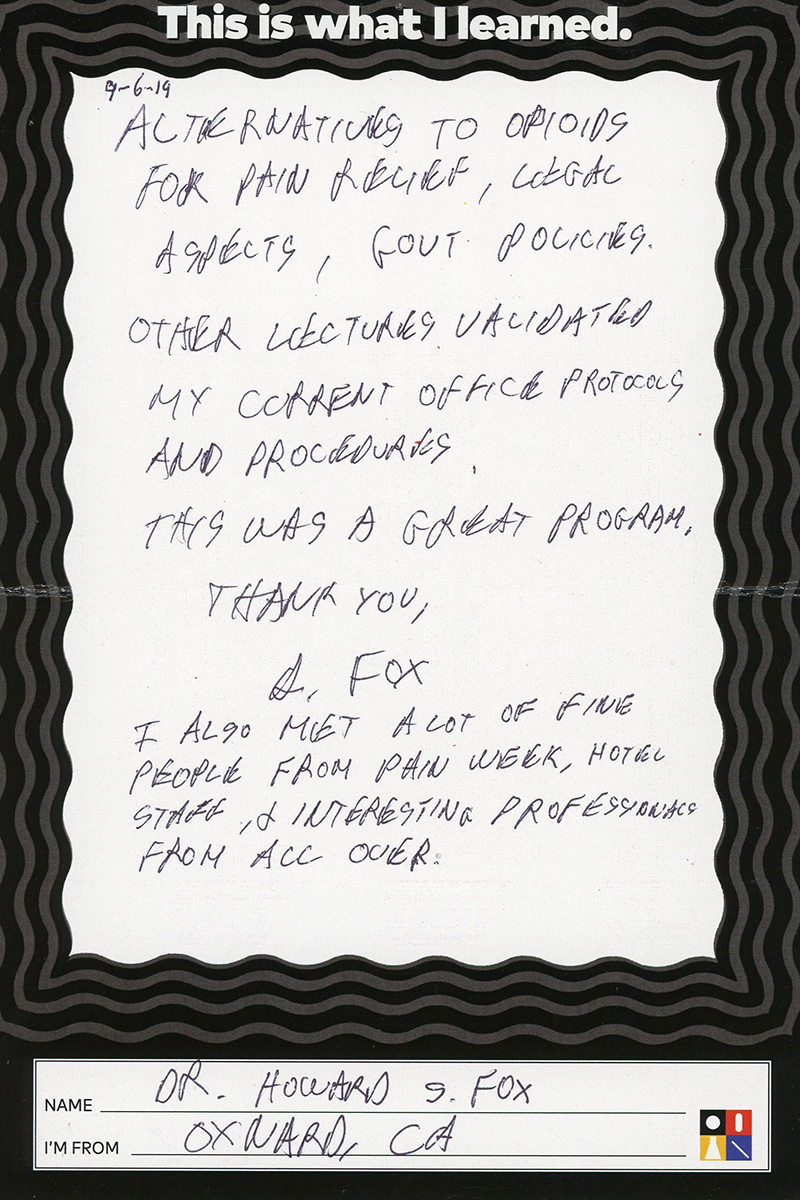 This is what I learned.
9-6-19
ALTERNATIVES TO OPIOIDS
FOR PAIN RELIEF, LEGAL
ASPECTS, GOVT. POLICIES.
OTHER LECTURES VALIDATED
MY CURRENT OFFICE PROTOCOLS
AND PROCEDURES.
THIS WAS A GREAT PROGRAM.
THANK YOU,
FOX
I ALSO MET A LOT OF FINE
PEOPLE FROM PAIN WEEK, HOTEL
STAFF, & INTERESTING PROFESSIONALS
FROM ALL OVER.
NAME DR. HOWARD S. FOX
I'M FROM OXNARD, CA